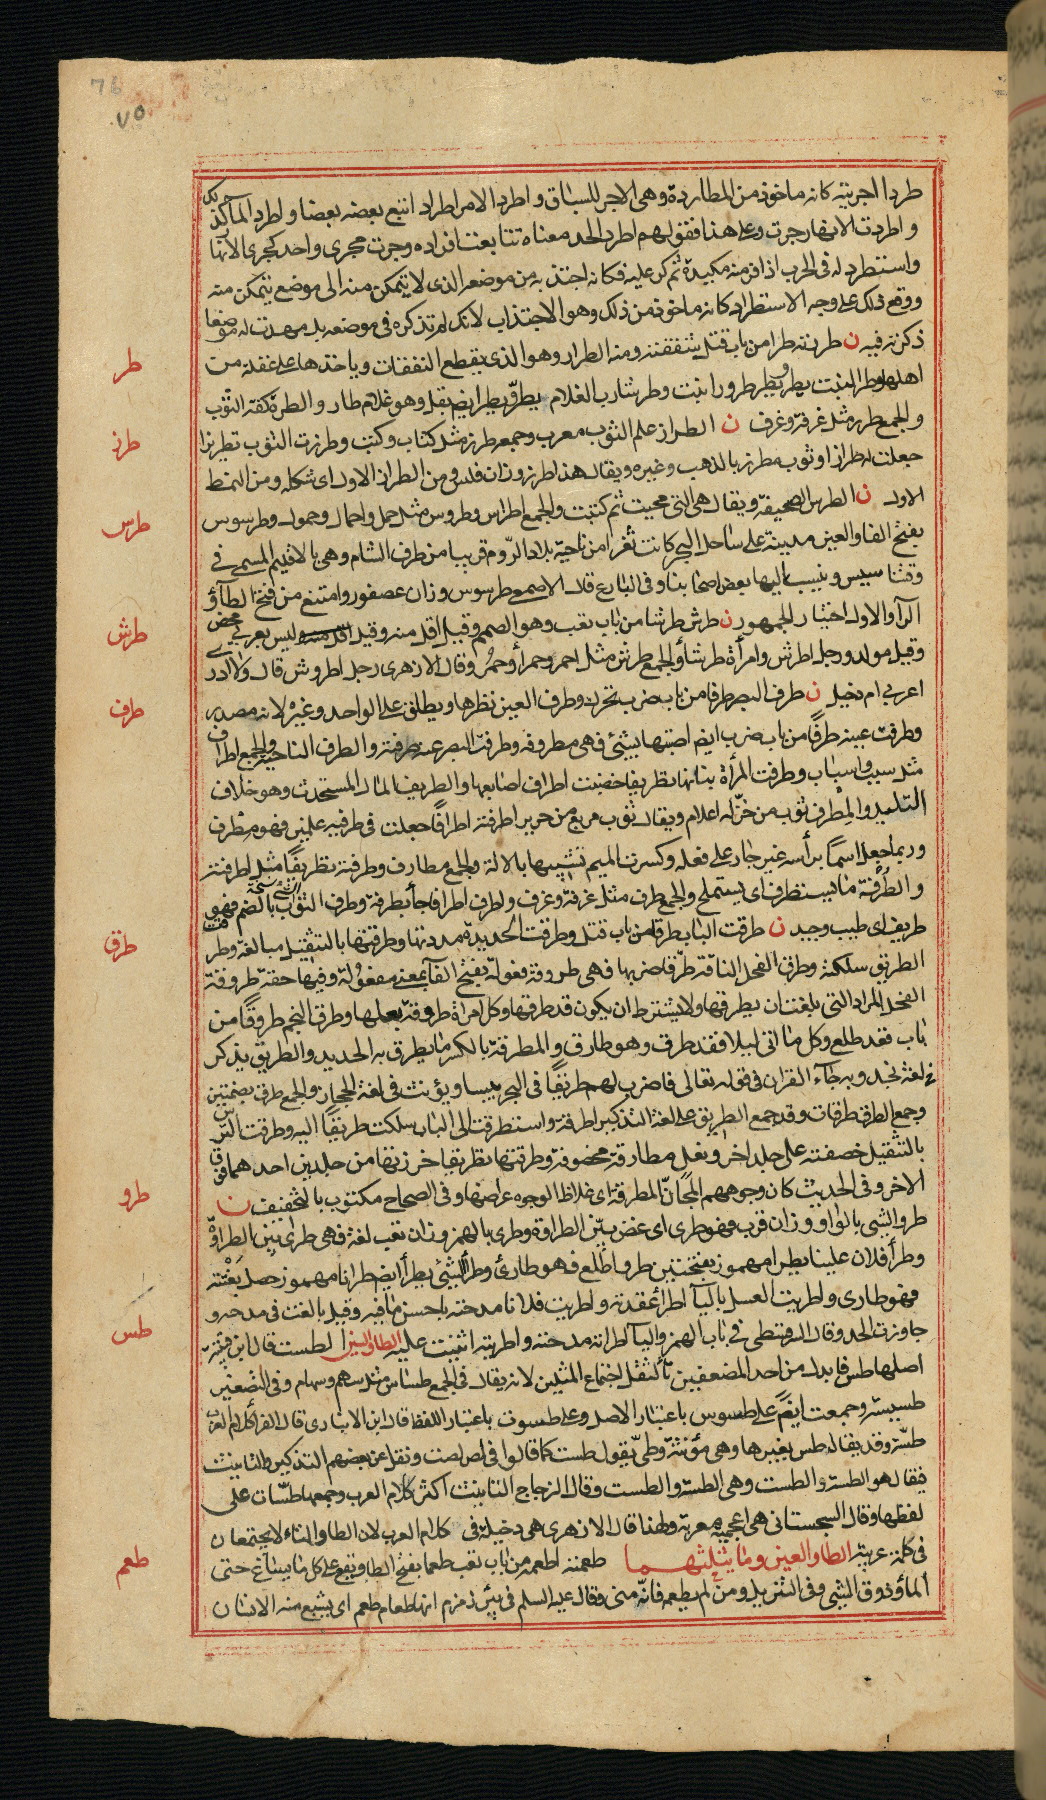 76
٧٥
طردا اجريته كانه ماخوذ من المطاردة وهى الاجر للسباق واطرد الامر اطرادا اتبع بعضه بعضا واطرد الما كذلك
واطردت الانهار جرت وعلى هذا فقولهم اطرد الحد معناه تتابعت افراده وجرت مجرى واحد كجرى الانهار
واستطرد له فى الحرب اذا فر منه مكيدة ثم كر عليه فكانه اجتذبه من موضعه الذى لا يتمكن منه الى موضع يتمكن منه
ووقع ذلك على وجه الاستطراد كانه ماخوذ من ذلك وهو الاجتذاب لانك لم تذكره فى موضعه بل مهدت له موضعا
ذكرته فيه ن طررته طرا من باب قتل شققته ومنه الطرار وهو الذى يقطع النفقات وياخذها على غفلة من
اهلها وطر النبت يطر ويطر طرورا نبت وطر شارب الغلام يطر ويطر ايض بقل وهو غلام طار والطرة كفة الثوب
والجمع طرر مثل غرفة وغرف ن الطراز علم الثوب معرب وجمعه طرز مثل كتاب وكتب وطرزت الثوب تطريزا
جعلت له طرازا وثوب مطرز بالذهب وغيره ويقال هذا طرز وزان فلس من الطراز الاول اى شكله ومن النمط
الاول ن الطرس الصحيفة ويقال هى التى محيت ثم كتبت والجمع اطراس وطروس مثل حمل واحمال وحمول وطرسوس
بفتح الفا والعين مدينة على ساحل البحر كانت ثغرا من ناحية بلاد الروم قريبا من طرف الشام وهى بالاقليم المسمى فى
وقتنا سيس وينسب اليها بعض اصحابنا وفى البارع قال الاصمعى طرسوس وزان عصفور وامتنع من فتح الطآؤ
الرآ والاول اختيار الجمهور ن طرش طرشا من باب تعب وهو الصمم وقيل اقل منه وقيل اقل منه وليس بعربى محض
وقيل مولد ورجل اطرش وامرأة طرشأ والجمع طرش مثل احمر وحمرأ وحمر وقال الازهرى رجل اطروش قال ولا ادرى
اعربى ام دخيل ن طرف البصر طرفا من باب ضرب تحرك وطرف العين نظرها ويطلق على الواحد وغيره لانه مصدر
وطرفت عينه طرفًا من باب ضرب ايض اصبتها بشئ فهى مطروفة وطرفت البصر عنه صرفته والطرف الناحية والجمع اطراف
مثل سبب واسباب وطرفت المرأة بنانها تطريفا خضبت اطراف اصابعها والطريف المال المستحدث وهو خلاف
التليد والمطرف ثوب من خز له اعلام ويقال ثوب مربع من حرير اطرفته اطرافًا جعلت فى طرفيه علمين فهو مطرف
وربما جعل اسمًا برأسه غير جار على فعله وكسرت الميم تشبيها بالالة والجمع مطارف وطرفته تطريفًا مثل اطرفته
والطُرفة ما يستطرف اى يستملح والجمع طرف مثل غرفة وغرف واطرف اطرافا جأ بطرفة وطرف الثوب بالضم فهو
الشئ نسخة
طريف اى طيب وجيد ن طرقت الباب طرقا من باب قتل وطرقت الحديدة مددتها وطرقتها بالتثقيل مبالغة وطرقت
الطريق سلكته وطرق الفحل الناقة طرقا ضربها فهى طروقة فعولة بفتح الفآ بمعنى مفعُولة وفيها حقة طروقة
الفحل المراد التى بلغت ان يطرقها ولا يشترط ان يكون قد طرقها وكل امراة طروقة بعلها وطرق النجم طروقًا من
باب قعد طلع وكل ما اتى ليلا فقد طرق وهو طارق والمطرقة بالكسر ما يطرق به الحديد والطريق يذكر
فى لغة نجد وبه جآء القران فى قوله تعالى فاضرب لهم طريقًا فى البحر يبسا ويؤنث فى لغة الحجاز والجمع طرق بضمتين
وجمع الطرق طرقات وقد جمع الطريق على لغة التذكير اطرقة واستطرقت الى الباب سلكت طريقًا اليه وطرقت الترس
بالتثقيل خصفته على جلد اخر ونعل مطارقة مخصوفة وطرقتها تطريقا خرزتها من جلدين احدهما فوق
الاخر وفى الحديث كان وجوههم المجانّ المطرقة اى غلاظ الوجوه عراضها وفى الصحاح مكتوب بالتخفيف ن
طرو الشى بالواو وزان قرب فهو طرى اى غض بيّن الطراوة وطرى بالهمز وزان تعب لغة فهى طرى بين الطراوة
وطرأ فلان علينا يطرا مهموز بفتحتين طروا طلع فهو طارئ وطرأ الشئ يطرأ ايض طرانا مهموز حصل بَغْتة
فهو طارى واطريت العسل باليآ اطرأ عقدته واطريت فلانا مدحته باحسن ما فيه وقيل بالغت فى مدحه و
جاوزت الحد وقال السرقسطى فى باب الهمز واليآ اطراته مدحته واطريته اثنيت عليه الطا والسين الطست قال ابن قتيبة
اصلها طس فابدل من احد المضعفين تآ لثقل اجتماع المثلين لانه يقال فى الجمع طساس مثل سهم وسهام وفى التصغير
طسيسة وجمعت ايض على طسوس باعتبار الاصل وعلى طسوت باعتبار اللفظ قال ابن الانبارى قال الفرأ كلام العرب
طسّة وقد يقال طس بغيرها وهى مؤنثة وطى يقول طست كما قالوا فى لص لصت ونقل عن بعضهم التذكير والتانيث
فيقال هو الطسة والطست وهى الطسة والطست وقال الزجاج التانيث اكثر كلام العرب وجمعها طسّات على
لفظها وقال السجستانى هى اعجمية معربة ولهذا قال الازهرى هى دخيلة فى كلام العرب لان الطا والتاء لا يجتمعان
فى كلمة عربية الطا والعين وما يثلثهما طعمته اطعمه من باب تعب طعما بفتح الطا ويقع على كل ما يساغ حتى
المأ وذوق الشى وفى التنزيل ومن لم يطعمه فانّه منى وقال عليه السلم فى بئر زمزم انها طعام طعم اى يشبع منه الانسان
طر
طرز
طرس
طرش
طرف
طرق
طرو
طس
طعم